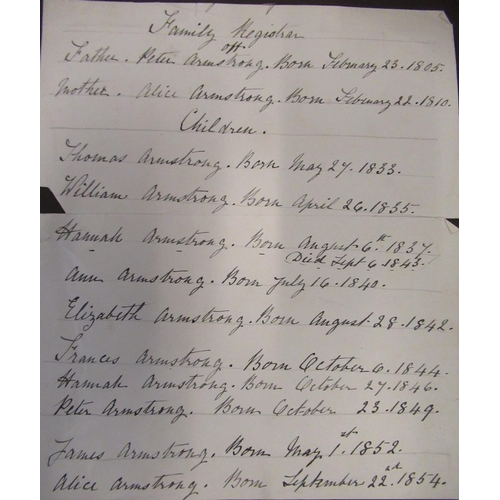 Family Registrar
of
Father. Peter Armstrong. Born February 23. 1805.
Mother. Alice Armstrong. Born February 22. 1810.
Children.
Thomas Armstrong. Born May 27. 1833.
William Armstrong. Born April 26. 1835.
Hannah Armstrong. Born August 6th 1837.
Died Sept 6 1843.
Ann Armstrong. Born July 16. 1840.
Elizabeth Armstrong. Born August. 28. 1842.
Frances Armstrong. Born October 6. 1844.
Hannah Armstrong. Born October 27. 1846.
Peter Armstrong. Born October 23. 1849.
James Armstrong. Born May 1st 1852.
Alice Armstrong. Born September 22nd 1854.